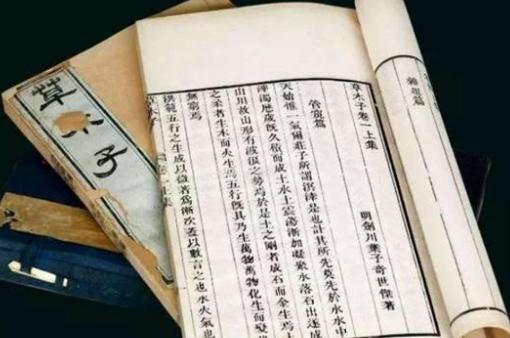 草木子
雜俎篇
草木子卷一上集
明劍川葉子奇世傑著
管窺篇
天始惟一氣爾莊子所謂溟涬是也計其所先莫先於水水中
滓濁歷歲既久積而成土水土震蕩漸加凝聚水落石出遂成
山川故山形有波浪之勢焉於是土之剛者成石而金生焉土
之柔者生木而火生焉五行既具乃生萬物萬物化生而變
無窮焉
洪範五行之生成以微著為漸次蓋以數言之也水火氣也
草木子